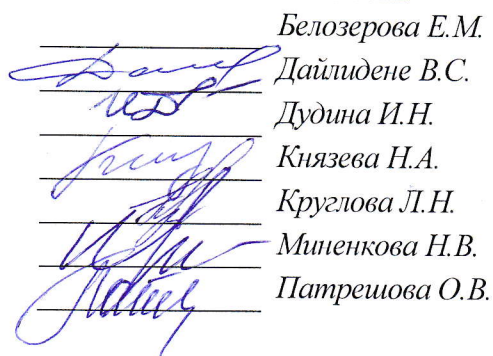 Белозерова Е.М.
Дайлидене В.С.
Дудина И.Н.
Князева Н.А.
Круглова Л.Н.
Миненкова Н.В.
Патрешова О.В.